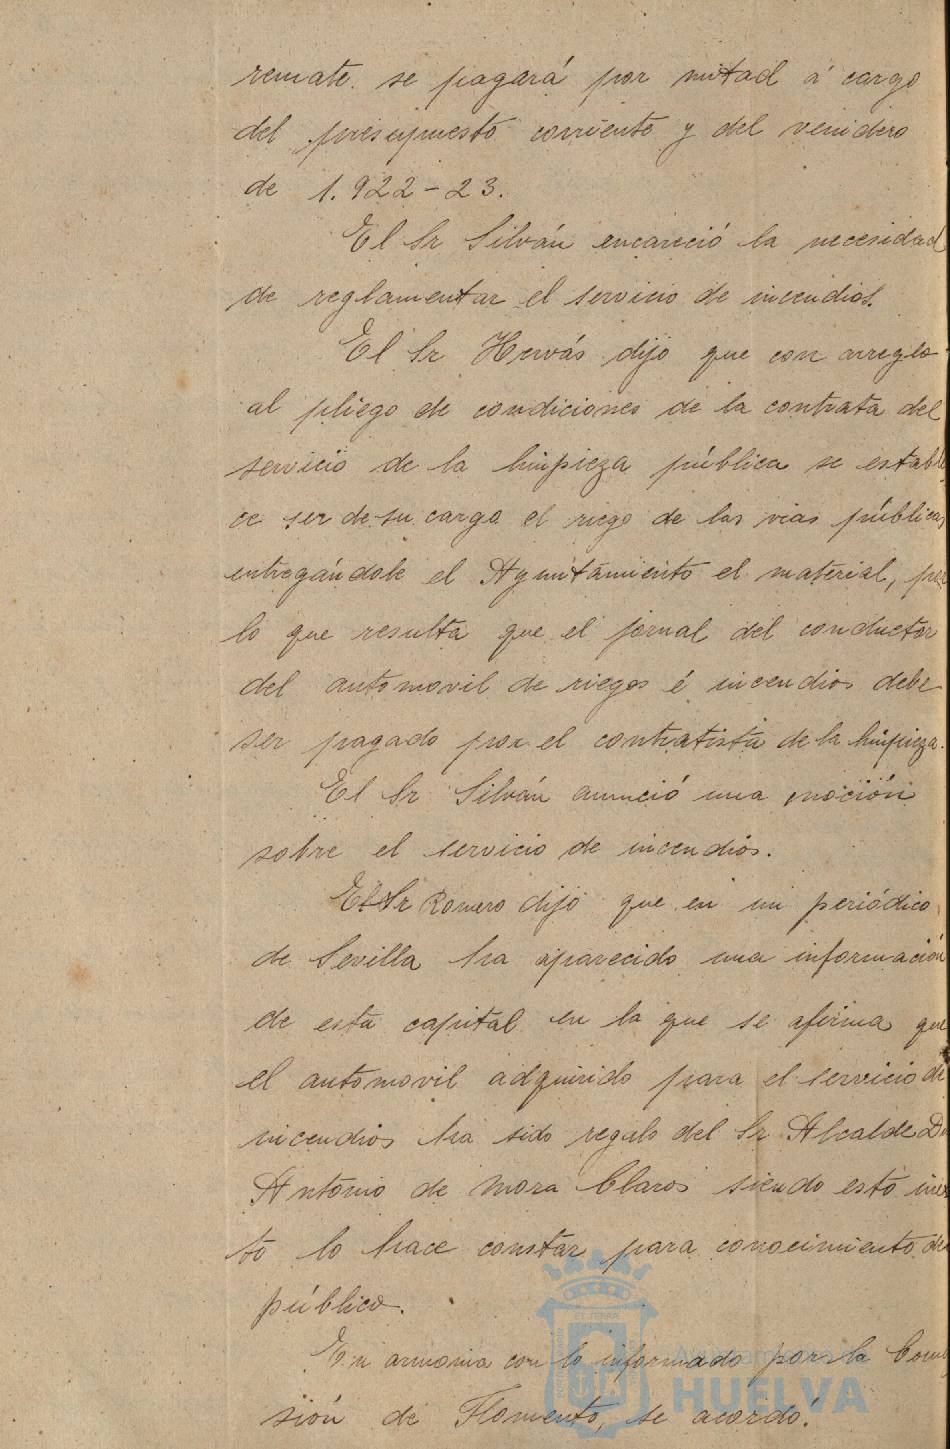 remate. se pagará por mitad á cargo
del presupuesto corriente y del venidero
de 1.922-23.
El Sr Silván encareció la necesidad
de reglamentar el servicio de incendios.
El Sr Hervás dijo que con arreglo
al pliego de condiciones de la contrata del
servicio de la limpieza pública se estable
ce ser de su cargo el riego de las vias públicas
entregándole el Ayuntamiento el material, por
lo que resulta que el jornal del conductor
del automovil de riegos é incendios debe
ser pagado por el contratista de la limpieza.
El Sr Silván anunció una moción
sobre el servicio de incendios.
El Sr Romero dijo que en un periódico
de Sevilla ha aparecido una información
de esta capital en la que se afirma que
el automovil adquirido para el servicio de
incendios ha sido regalo del Sr Alcalde Dn
Antonio de Mora Claros siendo esto incier
to lo hace constar para conocimiento del
público.
En armonia con lo informado por la Comi
sión de Fomento, se acordó:
Ayuntamiento de
HUELVA